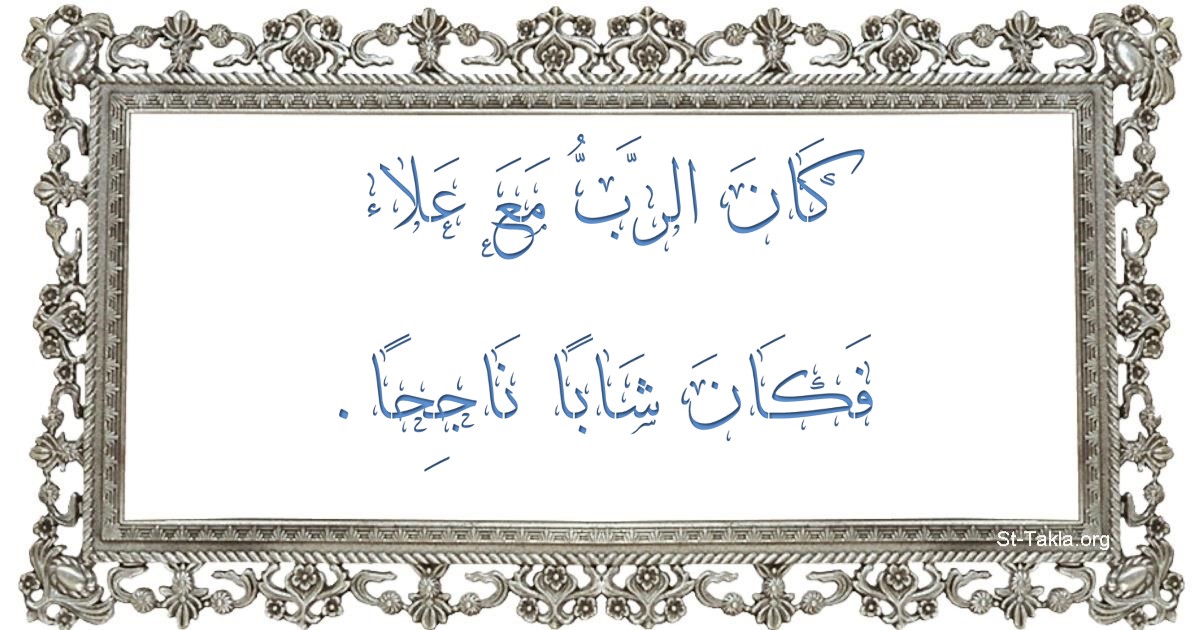 كَانَ الرَّبُّ مَعَ عَلاء
فَكَانَ شَابًا نَاجِحًا .
St-Takla.org